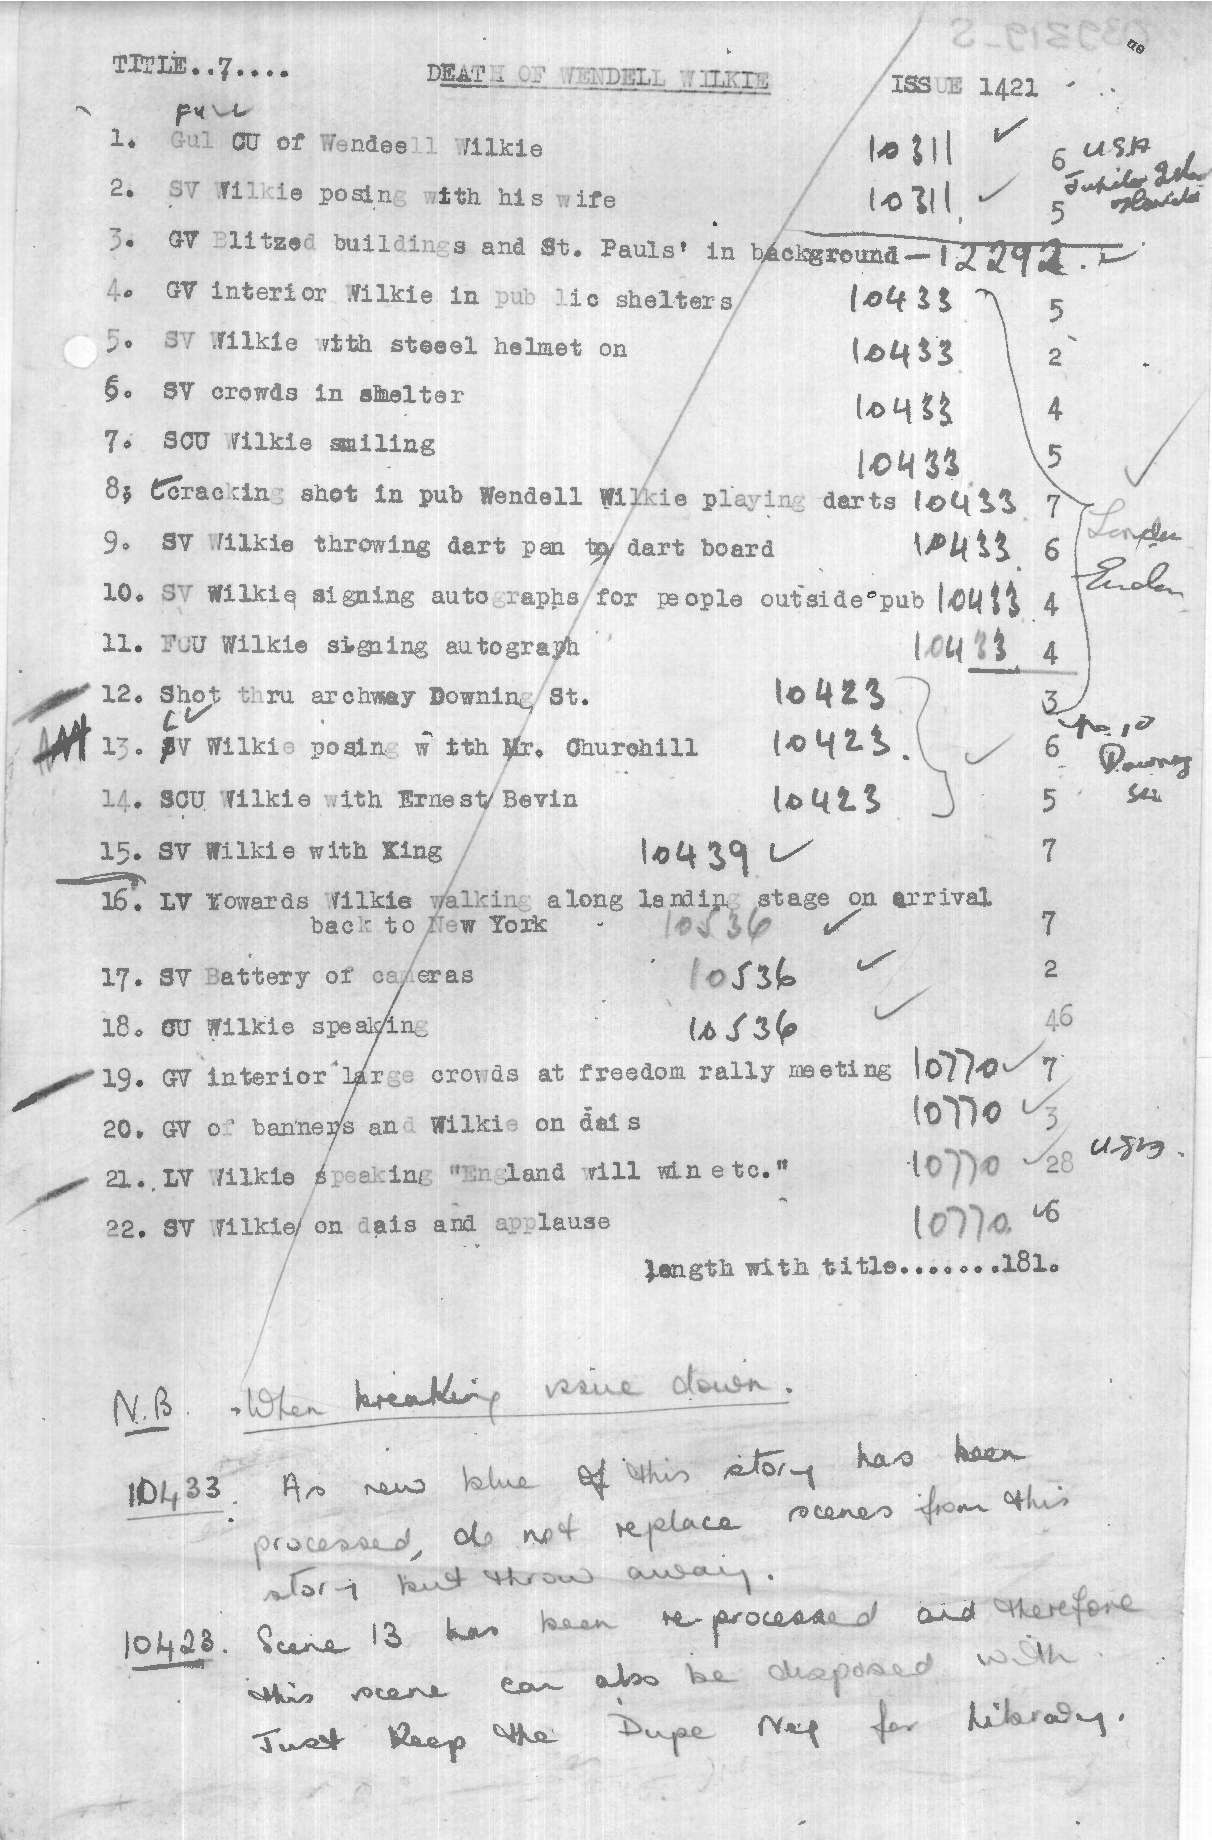 TITLE..7.... DEATH OF WENDELL WILKIE ISSUE 1421
FULL
1. Gul CU of Wendeell Wilkie 10311 6 USA
2. SV Wilkie posing with his wife 10311. 5
3. GV Blitzed buildings and St. Pauls' in background - 12292.
4. GV interior Wilkie in pub lic shelters 10433 5
5. SV Wilkie with steeel helmet on 10433 2
6. SV crowds in shelter 10433 4
7. SCU Wilkie smiling 10433 5
8; Ccracking shot in pub Wendell Wilkie playing darts 10433 7 London
9. SV Wilkie throwing dart pan to dart board 10433 6
10. SV Wilkie signing autographs for people outside pub 10433 4
11. FCU Wilkie signing autograph 10433 4
12. Shot thru archway Downing St. 10423 3
13. SV Wilkie posing w ith Mr. Churchill 10423. 6 No. 10 Downing
14. SCU Wilkie with Ernest Bevin 10423 5
15. SV Wilkie with King 10439 7
16. LV Towards Wilkie walking along landing stage on arrival
back to New York 10536 7
17. SV Battery of cameras 10536 2
18. CU Wilkie speaking 10536 46
19. GV interior large crowds at freedom rally meeting 10770 7
20. GV of banners and Wilkie on dais 10770 3
21. LV Wilkie speaking "England will win etc." 10770 28 USA.
22. SV Wilkie on dais and applause 10770. 6
length with title.......181.
N.B. When breaking issue down.
10433. As new blue of this story has been
processed, do not replace scenes from this
story but throw away.
10423. Scene 13 has been re-processed and therefore
this scene can also be disposed with
Just keep the Dupe Neg for library.